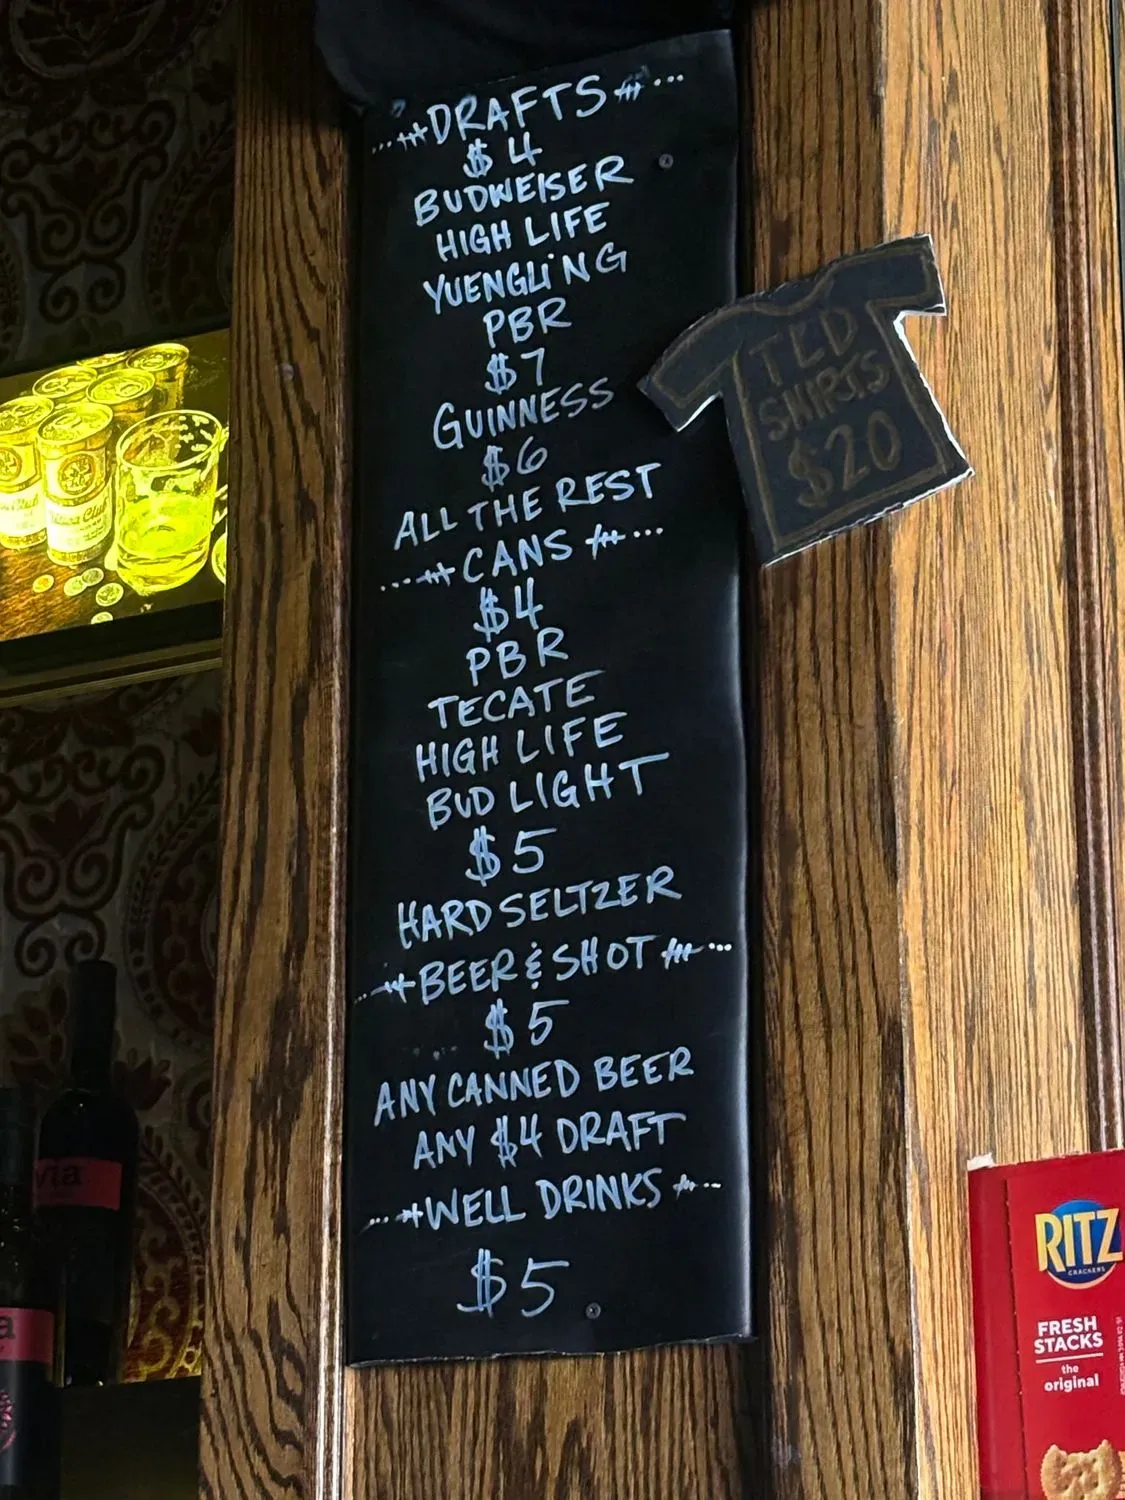 DRAFTS
$4
BUDWEISER
HIGH LIFE
YUENGLiNG
PBR
$7
GUINNESS
$6
ALL THE REST
CANS
$4
PBR
TECATE
HIGH LIFE
BUD LIGHT
$5
HARD SELTZER
BEER & SHOT
$5
ANY CANNED BEER
ANY $4 DRAFT
WELL DRINKS
$5
TLD
SHIRTS
$20
RITZ
CRACKERS
FRESH
STACKS
the
original
Club
via
a